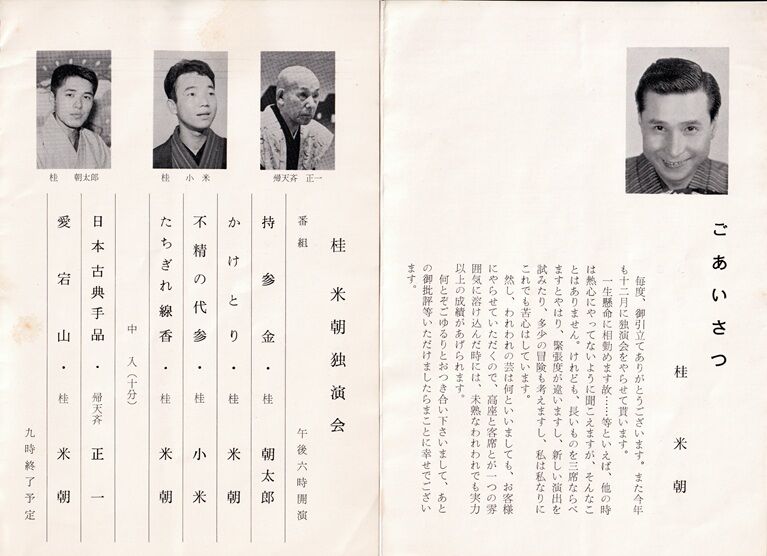 ごあいさつ
桂 米朝
毎度、御引立てありがとうございます。また今年
も十二月に独演会をやらせて貰います。
一生懸命に相勤めます故……等といえば、他の時
は熱心にやってないように聞こえますが、そんなこ
とはありません。けれども、長いものを三席ならべ
ますとやはり、緊張度が違いますし、新しい演出を
試みたり、多少の冒険も考えますし、私は私なりに
これでも苦心はしています。
然し、われわれの芸は何といいましても、お客様
にやらせていただくので、高座と客席とが一つの雰
囲気に溶け込んだ時には、未熟なわれわれでも実力
以上の成績があげられます。
何とぞごゆるりとおつき合い下さいまして、あと
の御批評等いただけましたらまことに幸せでござい
ます。
帰天斉 正一
桂 小米
桂 朝太郎
桂米朝独演会
番組 午後六時開演
持参金・桂 朝太郎
かけとり・桂 米朝
不精の代参・桂 小米
たちぎれ線香・桂 米朝
中入(十分)
日本古典手品・帰天斉 正一
愛宕山・桂 米朝
九時終了予定